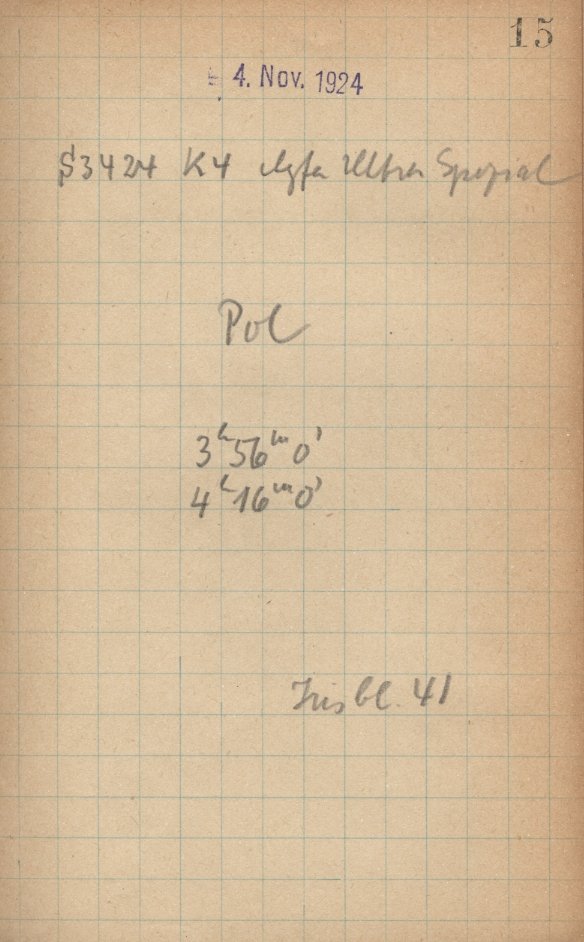 15
4. Nov. 1924
S3424 K4 Agfa Ultra Spezial
Pol
3ʰ56ᵐ0ˢ
4ʰ16ᵐ0ˢ
Irisbl. 41